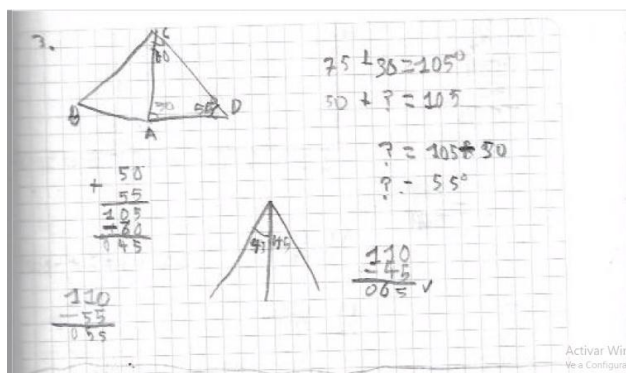 3.
C
60
B
50
55
D
A
75 + 30 = 105°
50 + ? = 105
? = 105 - 50
? = 55°
50
+ 55
105
- 60
045
45 45
110
- 45
065 ✓
110
- 55
055
Activar Win
Ve a Configura